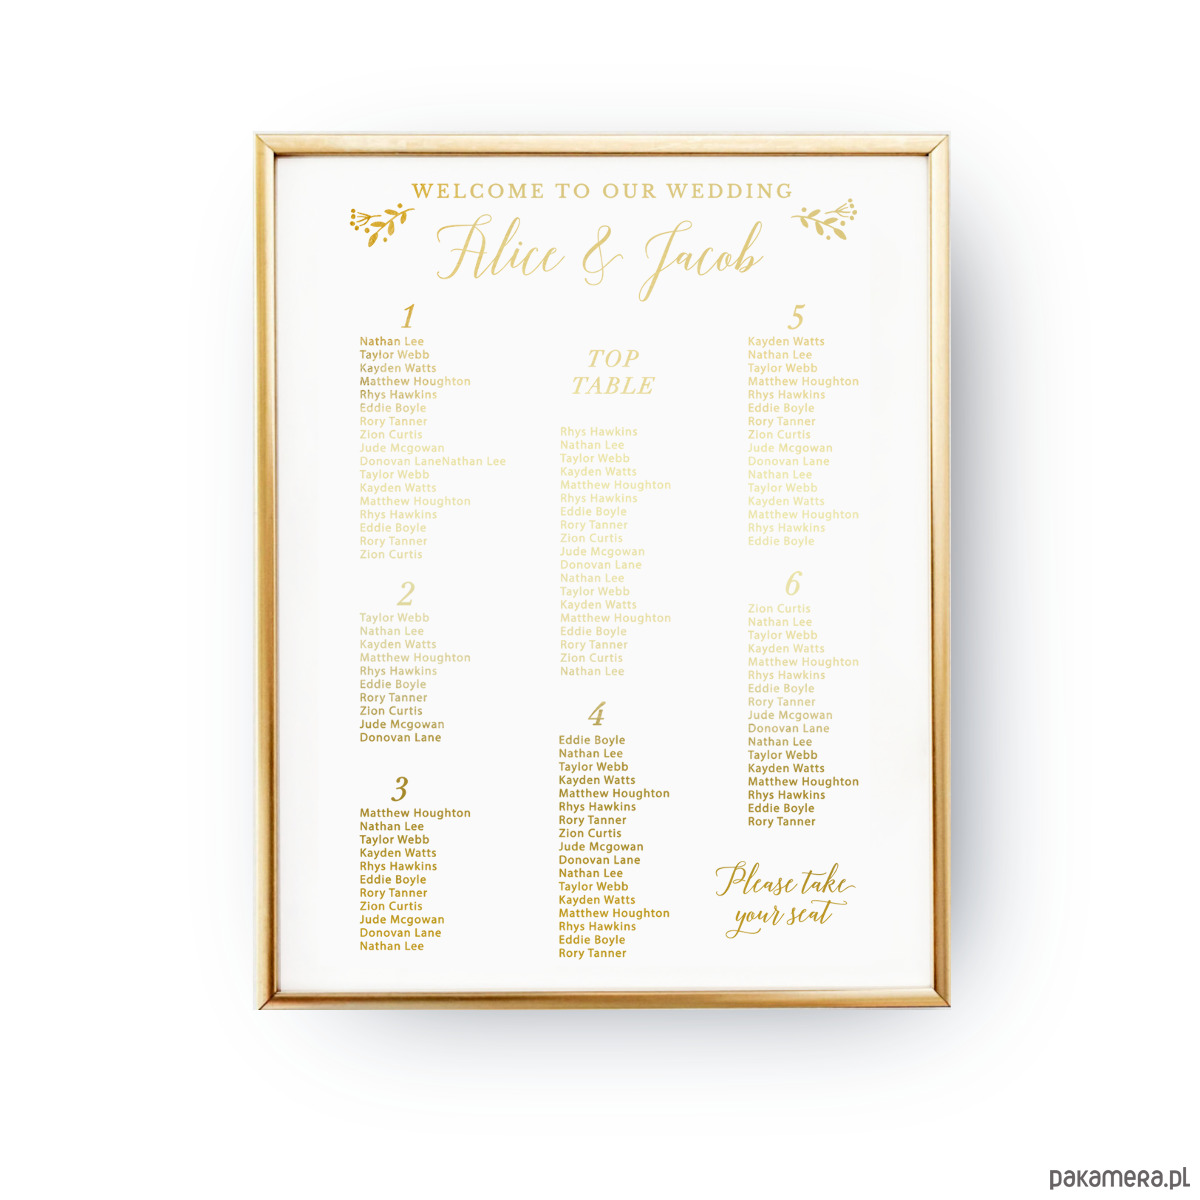 WELCOME TO OUR WEDDING
Alice & Jacob
1
Nathan Lee
Taylor Webb
Kayden Watts
Matthew Houghton
Rhys Hawkins
Eddie Boyle
Rory Tanner
Zion Curtis
Jude Mcgowan
Donovan LaneNathan Lee
Taylor Webb
Kayden Watts
Matthew Houghton
Rhys Hawkins
Eddie Boyle
Rory Tanner
Zion Curtis
2
Taylor Webb
Nathan Lee
Kayden Watts
Matthew Houghton
Rhys Hawkins
Eddie Boyle
Rory Tanner
Zion Curtis
Jude Mcgowan
Donovan Lane
3
Matthew Houghton
Nathan Lee
Taylor Webb
Kayden Watts
Rhys Hawkins
Eddie Boyle
Rory Tanner
Zion Curtis
Jude Mcgowan
Donovan Lane
Nathan Lee
TOP
TABLE
Rhys Hawkins
Nathan Lee
Taylor Webb
Kayden Watts
Matthew Houghton
Rhys Hawkins
Eddie Boyle
Rory Tanner
Zion Curtis
Jude Mcgowan
Donovan Lane
Nathan Lee
Taylor Webb
Kayden Watts
Matthew Houghton
Eddie Boyle
Rory Tanner
Zion Curtis
Nathan Lee
4
Eddie Boyle
Nathan Lee
Taylor Webb
Kayden Watts
Matthew Houghton
Rhys Hawkins
Rory Tanner
Zion Curtis
Jude Mcgowan
Donovan Lane
Nathan Lee
Taylor Webb
Kayden Watts
Matthew Houghton
Rhys Hawkins
Eddie Boyle
Rory Tanner
5
Kayden Watts
Nathan Lee
Taylor Webb
Matthew Houghton
Rhys Hawkins
Eddie Boyle
Rory Tanner
Zion Curtis
Jude Mcgowan
Donovan Lane
Nathan Lee
Taylor Webb
Kayden Watts
Matthew Houghton
Rhys Hawkins
Eddie Boyle
6
Zion Curtis
Nathan Lee
Taylor Webb
Kayden Watts
Matthew Houghton
Rhys Hawkins
Eddie Boyle
Rory Tanner
Jude Mcgowan
Donovan Lane
Nathan Lee
Taylor Webb
Kayden Watts
Matthew Houghton
Rhys Hawkins
Eddie Boyle
Rory Tanner
Please take
your seat
pakamera.pl